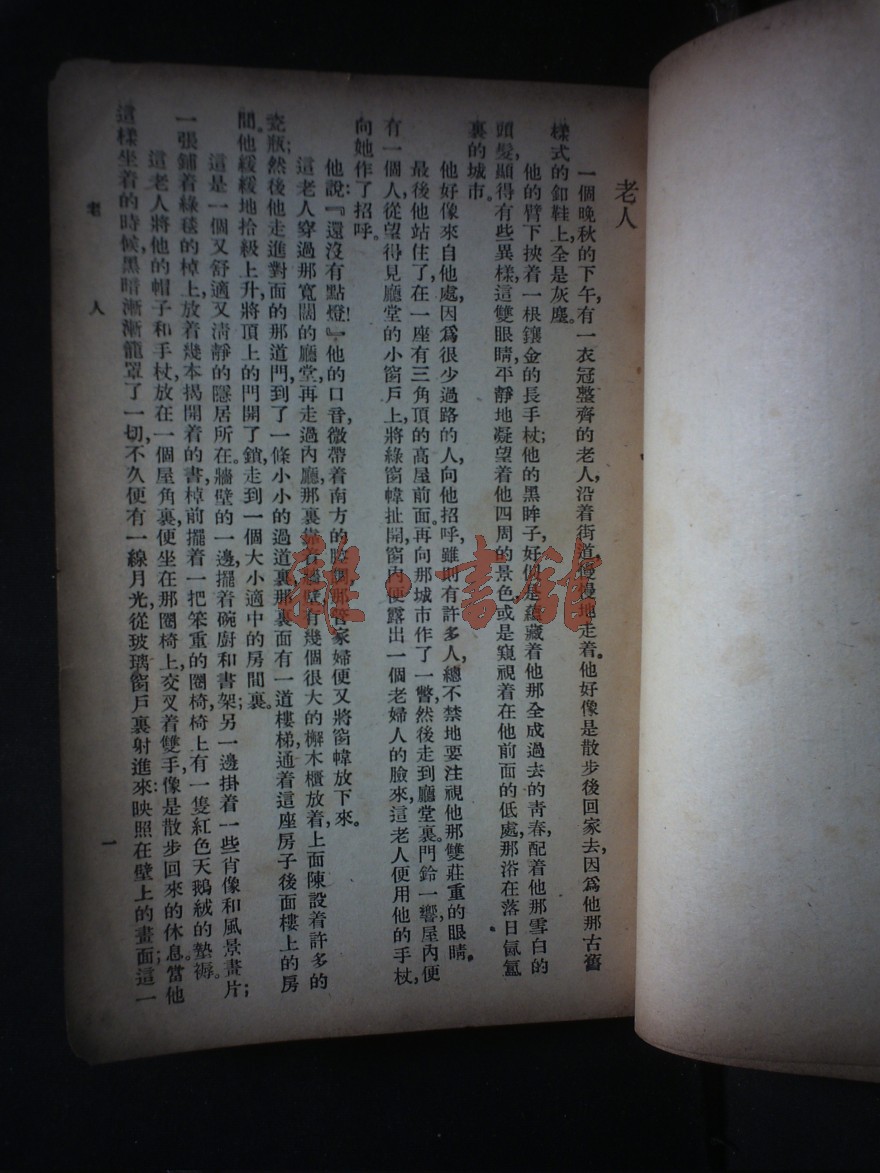 老人
一個晚秋的下午,有一衣冠整齊的老人,沿着街道,慢慢地走着。他好像是散步後回家去,因爲他那古舊
樣式的釦鞋上,全是灰塵。
他的臂下挾着一根鑲金的長手杖;他的黑眸子,好似是蘊藏着他那全成過去的青春,配着他那雪白的
頭髮,顯得有些異樣,這雙眼睛,平靜地凝望着他四周的景色,或是窺視着在他前面的低處,那浴在落日氤氳
裏的城市。
他好像來自他處,因爲很少過路的人,向他招呼,雖則有許多人,總不禁地要注視他那雙莊重的眼睛。
最後他站住了,在一座有三角頂的高屋前面。再向那城市作了一瞥,然後走到廳堂裏。門鈴一響,屋內便
有一個人,從望得見廳堂的小窗戶上,將綠窗幃扯開,窗內便露出一個老婦人的臉來,這老人便用他的手杖,
向她作了招呼。
他說:『還沒有點燈!』他的口音,微帶着南方的腔調,那管家婦便又將窗幃放下來。
這老人穿過那寬闊的廳堂,再走過內廳,那裏靠着牆壁,有幾個很大的櫥木櫃放着,上面陳設着許多的
瓷瓶;然後他走進對面的那道門,到了一條小小的過道裏,那裏面有一道樓梯,通着這座房子後面樓上的房
間。他緩緩地拾級上升,將頂上的門開了鎖,走到一個大小適中的房間裏。
這是一個又舒適又清靜的隱居所在。牆壁的一邊,擺着碗廚和書架;另一邊掛着一些肖像和風景畫片;
一張鋪着綠毯的棹上,放着幾本揭開着的書,棹前擺着一把笨重的圈椅,椅上有一隻紅色天鵝絨的墊褥。
這老人將他的帽子和手杖放在一個屋角裏,便坐在那圈椅上,交叉着雙手,像是散步回來的休息。當他
這樣坐着的時候,黑暗漸漸籠罩了一切,不久便有一線月光,從玻璃窗戶裏射進來,映照在壁上的畫面;這一
老人
一
雜·書館